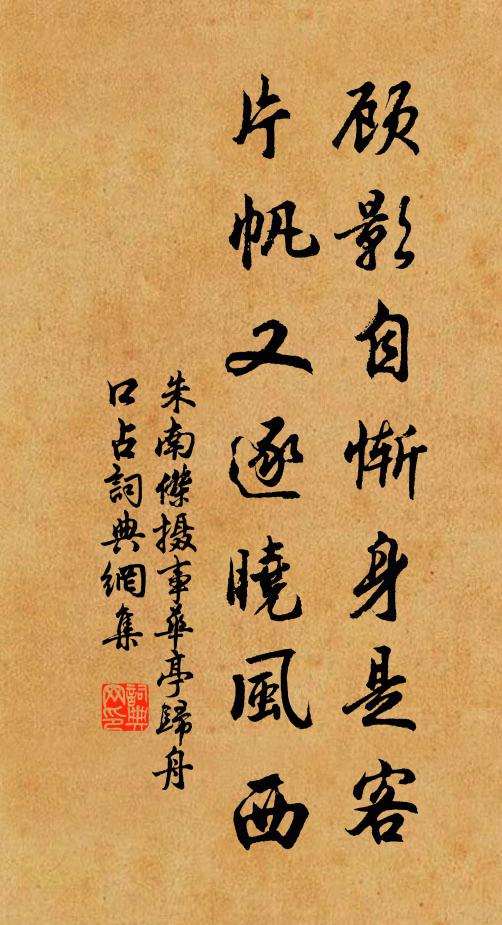 顾影自惭身是客
片帆又逐曉風西
朱南傑摄事華亭歸舟
口占詞典網集
詞典网印